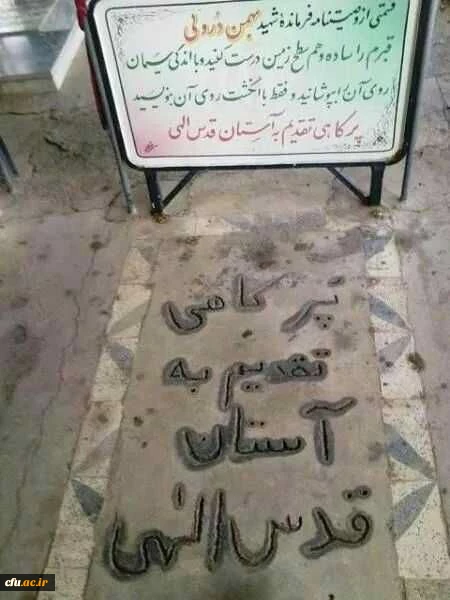 قسمتی از وصیتنامه فرمانده شهید بهمن درولی
قبرم را ساده و هم سطح زمین درست کنید و با اندکی سیمان
روی آن را بپوشانید و فقط با انگشت روی آن بنویسید
پر کاهی تقدیم به آستان قدس الهی
پر کاهی
تقدیم به
آستان
قدس الهی
cfu.ac.ir